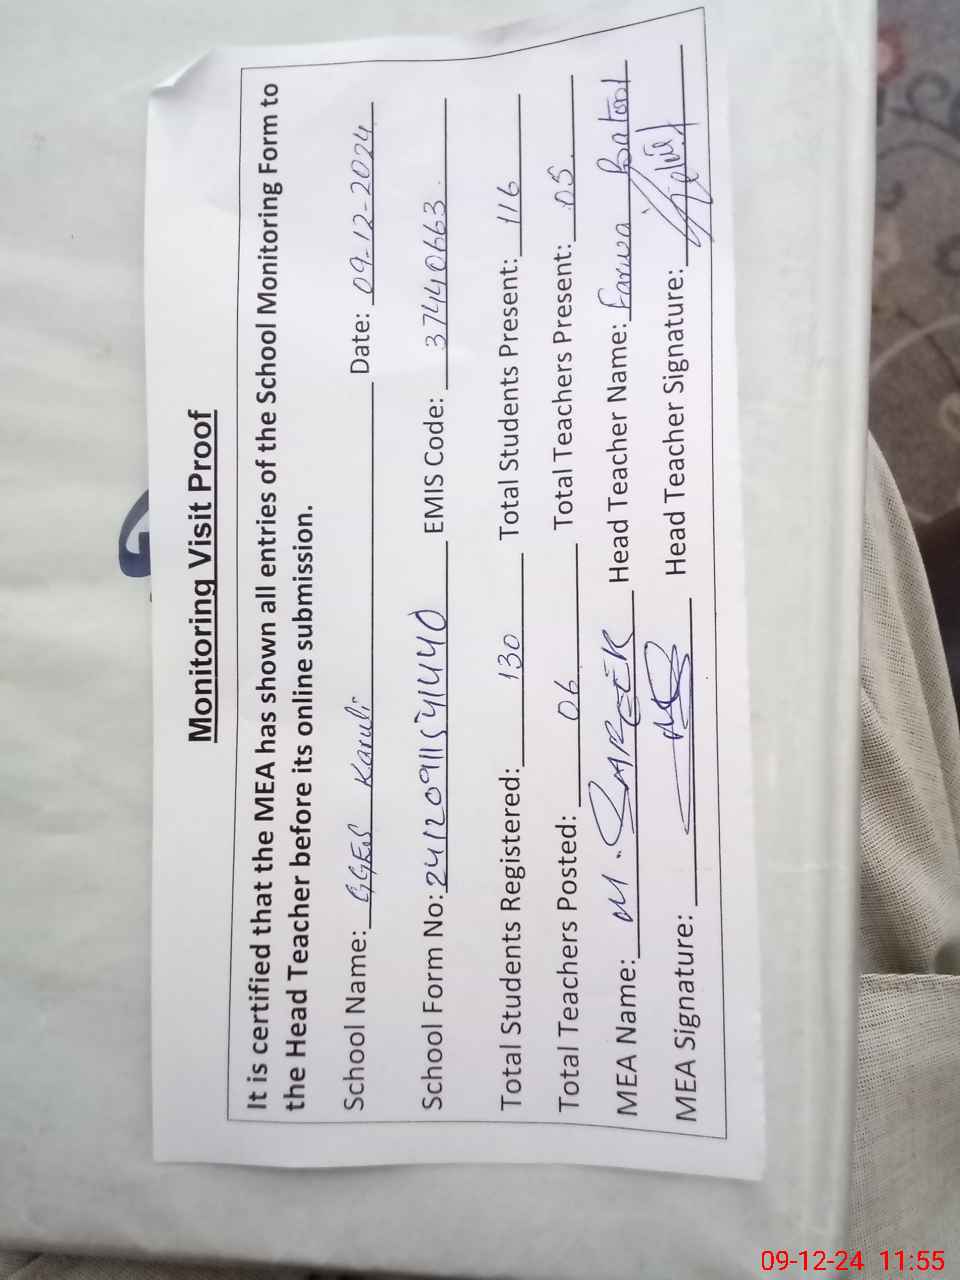 Monitoring Visit Proof
It is certified that the MEA has shown all entries of the School Monitoring Form to
the Head Teacher before its online submission.
School Name: GGES Karuli Date: 09-12-2024
School Form No: EMIS Code: 37440663
Total Students Registered: 130 Total Students Present: 116
Total Teachers Posted: 06 Total Teachers Present: 05
MEA Name: M. Head Teacher Name: Farwa Batool
MEA Signature: Head Teacher Signature:
09-12-24 11:55